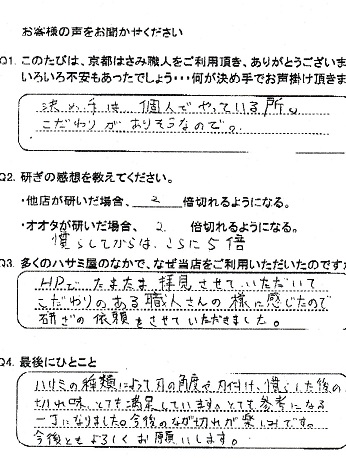 お客様の声をお聞かせください
Q1. このたびは、京都はさみ職人をご利用頂き、ありがとうございま
いろいろ不安もあったでしょう・・・何が決め手でお声掛け頂きま
決め手は 個人でやっている所。
こだわりがありそうなので。
Q2. 研ぎの感想を教えてください。
・他店が研いだ場合、 2 倍切れるようになる。
・オオタが研いだ場合、 2. 倍切れるようになる。
慣らしてからは、さらに5倍
Q3. 多くのハサミ屋のなかで、なぜ当店をご利用いただいたのですか
HPでたまたま拝見させていただいて
こだわりのある職人さんの様に感じたので
研ぎの依頼をさせていただきました。
Q4. 最後にひとこと
ハサミの種類によって刃の角度や刃付け、慣らした後の
切れ味、とても満足しています。とても参考になる
一丁になりました。今後のなが切れが楽しみです。
今後ともよろしくお願いします。